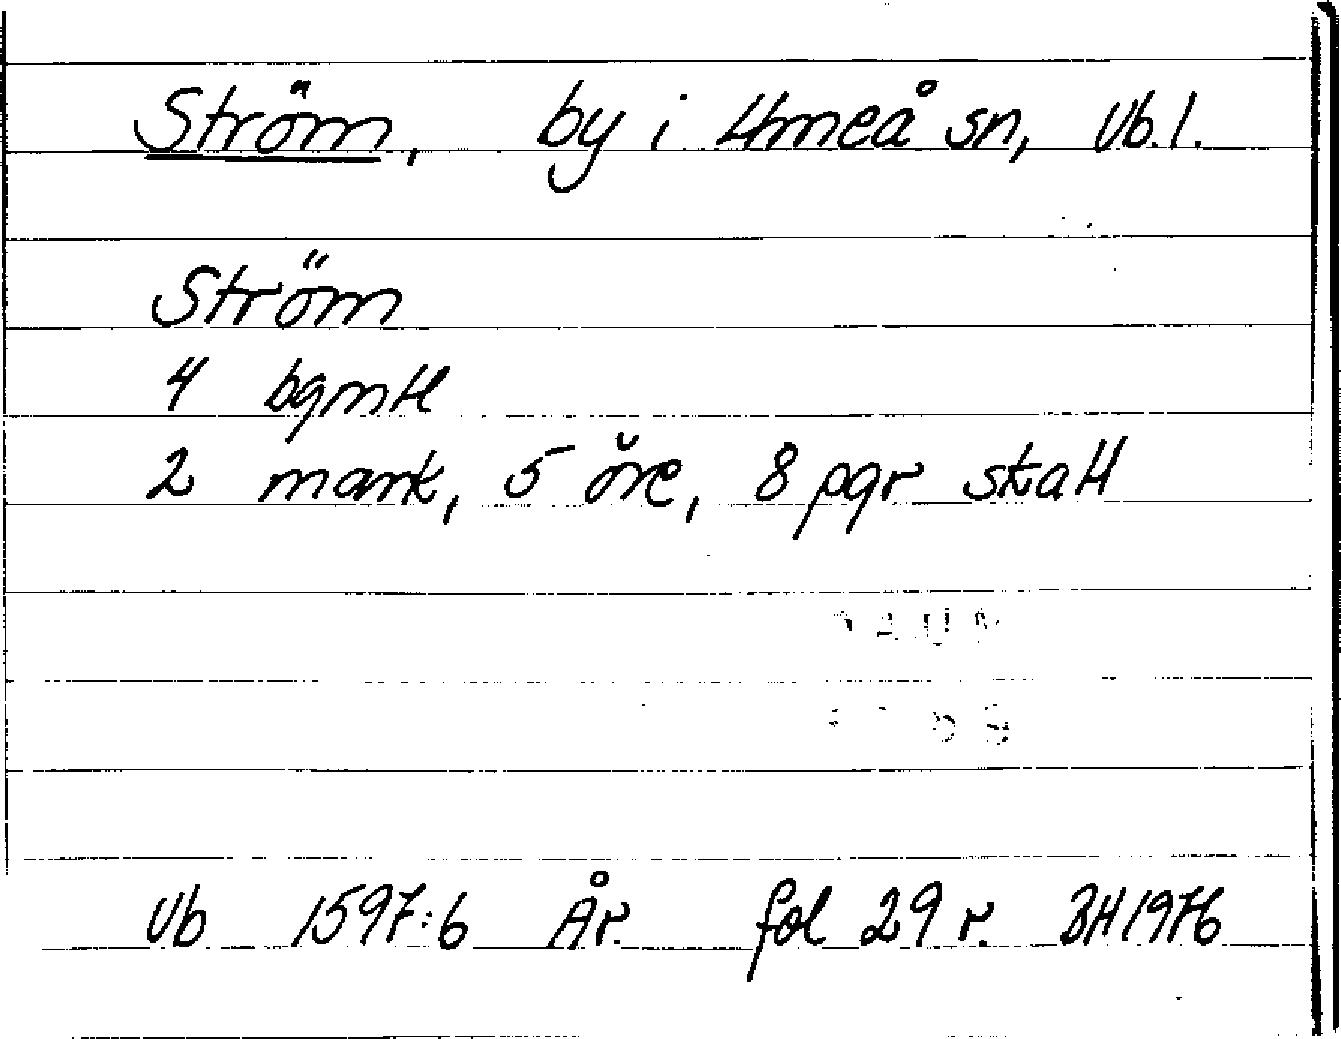 Ström, by i Umeå sn, Vb.l.
Ström
4 bgmtl
2 mark, 5 öre, 8 pgr skatt
Vb 1597:6 År. fol 29 r. BH 1976